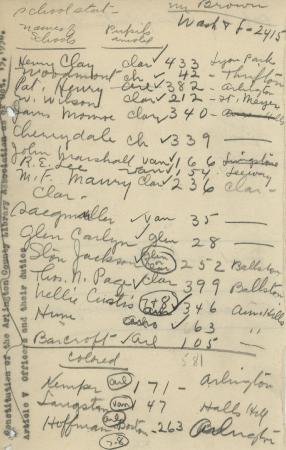 school start-
Mr Brown
Wash & Lee - 2415
Names of Schools
Pupils enrolled
Henry Clay clar ✓ 433 Lyon Park
Woodmont ch ✓ 42 - Thrifton
Pat. Henry - arl ✓ 382 - Arlington
W. Wilson clar ✓ 212 - Ft. Myer
James Monroe clar ✓ 340 -
Cherrydale ch ✓ 339 —
John Marshall van ✓ 166 Livingstone
R. E. Lee van ✓ 154 Leeway
M. F. Maury Clar 236 Clar-
Clar-
Sacqmuller ✓ van 35 —
Glen Carlyn ✓ glen 28 —
Ston Jackson ✓ glen or clar 252 Ballston
Thos. N. Page ✓ clar 399 Ballston
Nellie Custis (7-8) ✓ 346 Aur. Hills
Hume ✓ 63 "
Barcroft ✓ Arl 105 —
581
Colored
Kemper (arl) 171 - Arlington
Langston (van) 47 Halls Hill
Hoffman Boston (arl) - 263 Arlington
(7-8)
Constitution of the Arlington County Library Association
Article V Officers and their duties